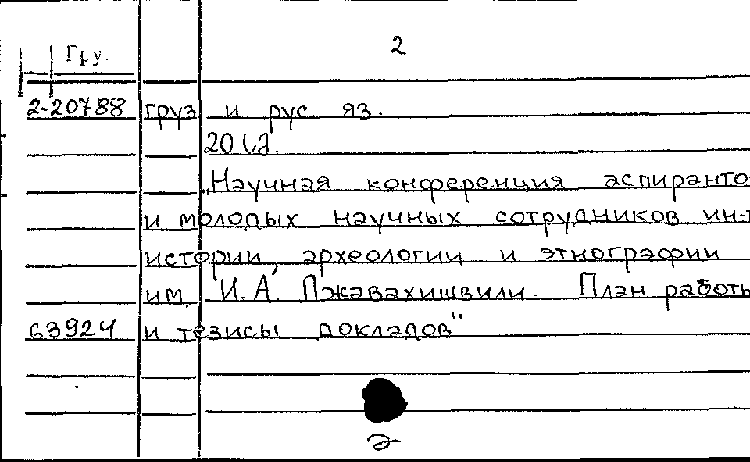 Гру.
2
2-20788 груз и рус яз.
20 см.
„Научная конференция аспиранто
и молодых научных сотрудников ин-т
истории, археологии и этнографии
им. И.А. Джавахишвили. План работы
63924 и тезисы докладов"